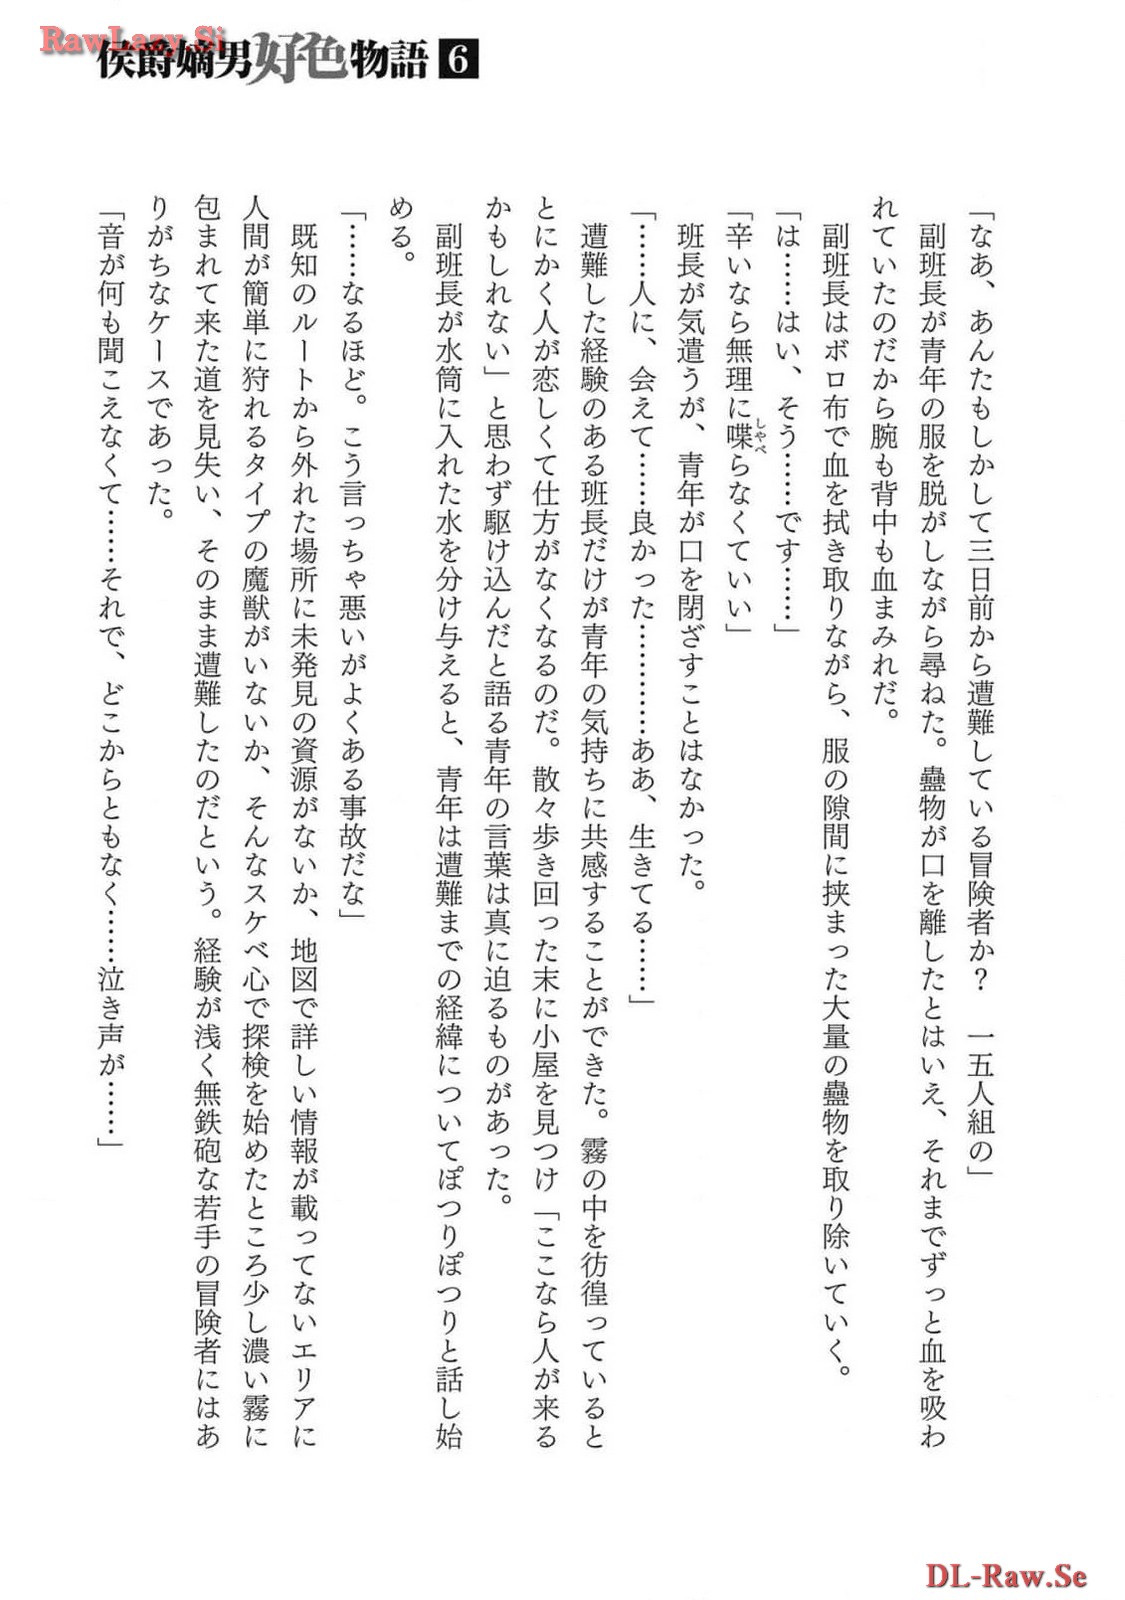 RawLazy.Si
侯爵嫡男好色物語 6
「なあ、あんたもしかして三日前から遭難している冒険者か？　一五人組の」
副班長が青年の服を脱がしながら尋ねた。蠱物が口を離したとはいえ、それまでずっと血を吸わ
れていたのだから腕も背中も血まみれだ。
副班長はボロ布で血を拭き取りながら、服の隙間に挟まった大量の蠱物を取り除いていく。
「は……はい、そう……です……」
「辛いなら無理に喋らなくていい」
しゃべ
班長が気遣うが、青年が口を閉ざすことはなかった。
「……人に、会えて……良かった…………ああ、生きてる……」
遭難した経験のある班長だけが青年の気持ちに共感することができた。霧の中を彷徨っていると
とにかく人が恋しくて仕方がなくなるのだ。散々歩き回った末に小屋を見つけ「ここなら人が来る
かもしれない」と思わず駆け込んだと語る青年の言葉は真に迫るものがあった。
副班長が水筒に入れた水を分け与えると、青年は遭難までの経緯についてぽつりぽつりと話し始
める。
「……なるほど。こう言っちゃ悪いがよくある事故だな」
既知のルートから外れた場所に未発見の資源がないか、地図で詳しい情報が載ってないエリアに
人間が簡単に狩れるタイプの魔獣がいないか、そんなスケベ心で探検を始めたところ少し濃い霧に
包まれて来た道を見失い、そのまま遭難したのだという。経験が浅く無鉄砲な若手の冒険者にはあ
りがちなケースであった。
「音が何も聞こえなくて……それで、どこからともなく……泣き声が……」
DL-Raw.Se